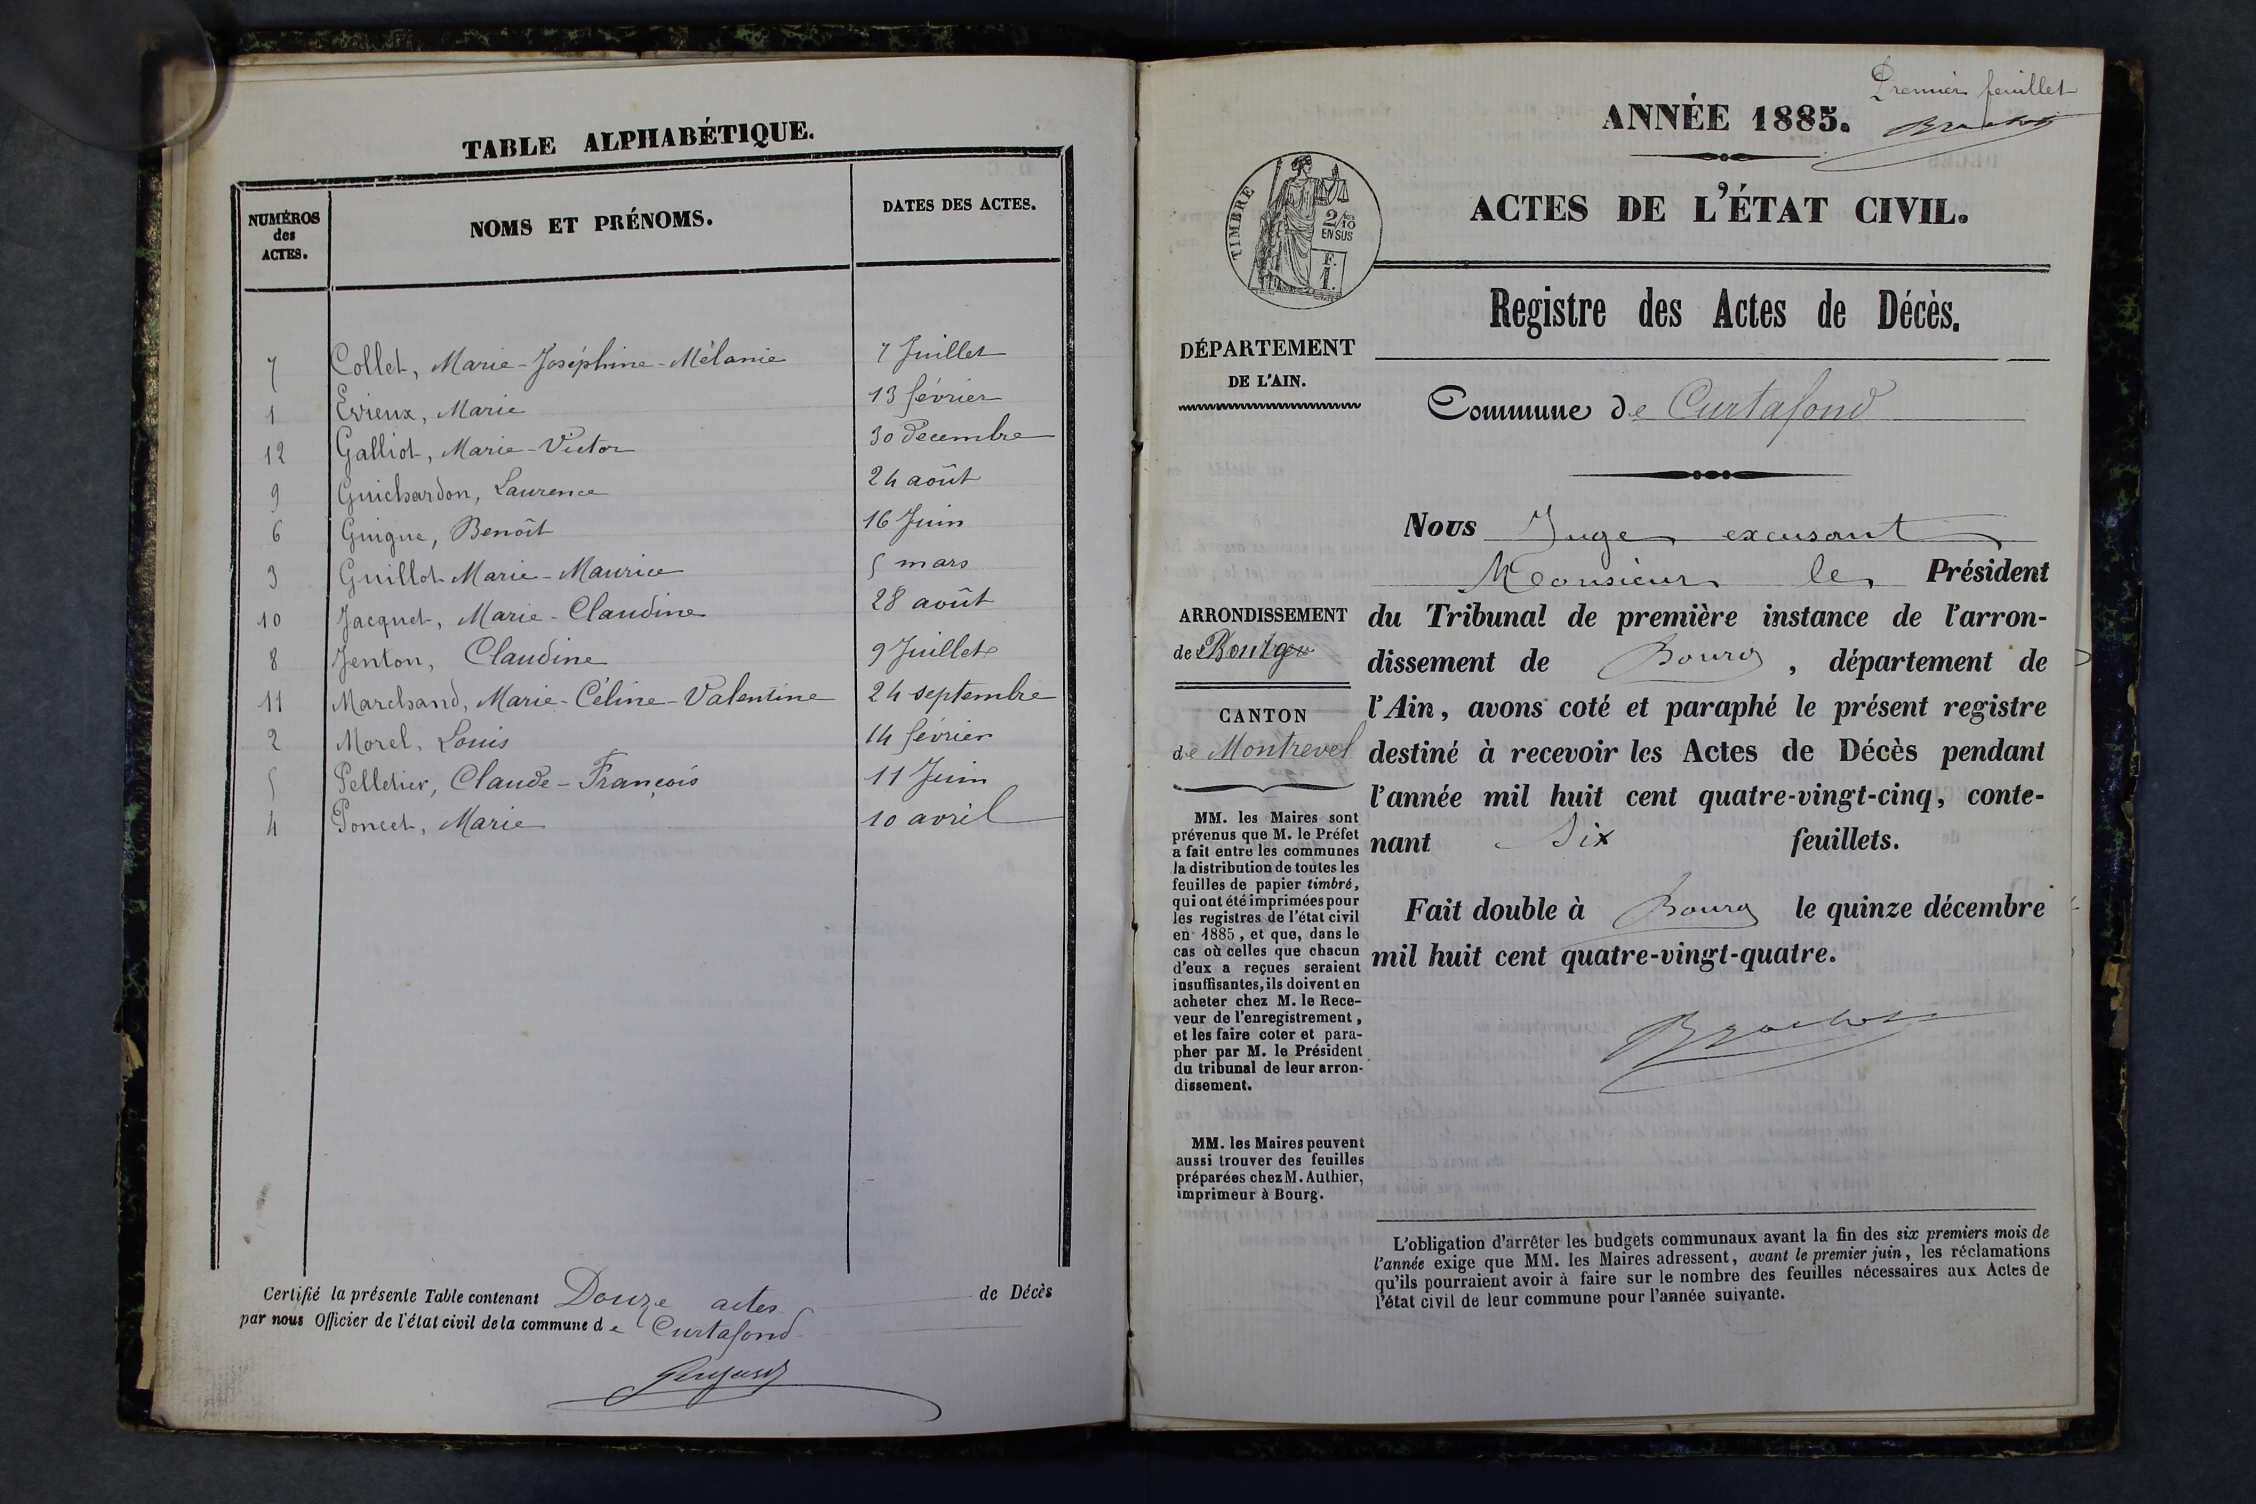 TABLE ALPHABÉTIQUE.
NUMÉROS
des
ACTES.
NOMS ET PRÉNOMS.
DATES DES ACTES.
7 Collet, Marie-Joséphine-Mélanie 7 Juillet
1 Evieux, Marie 13 février
12 Galliot, Marie-Victor 30 décembre
9 Guichardon, Laurence 24 août
6 Guigue, Benoît 16 Juin
3 Guillot Marie-Maurice 5 mars
10 Jacquet, Marie-Claudine 28 août
8 Jenton, Claudine 9 Juillet
11 Marchand, Marie-Céline-Valentine 24 septembre
2 Morel, Louis 14 février
5 Pelletier, Claude-François 11 Juin
4 Poncet, Marie 10 avril
Certifié la présente Table contenant Douze actes de Décès
par nous Officier de l'état civil de la commune de Curtafond
Premier feuillet
ANNÉE 1885.
ACTES DE L'ÉTAT CIVIL.
TIMBRE
2/10
EN SUS
F.
1.
Registre des Actes de Décès.
DÉPARTEMENT
DE L'AIN.
Commune de Curtafond
ARRONDISSEMENT
de Bourg
CANTON
de Montrevel
MM. les Maires sont
prévenus que M. le Préfet
a fait entre les communes
la distribution de toutes les
feuilles de papier timbré,
qui ont été imprimées pour
les registres de l'état civil
en 1885, et que, dans le
cas où celles que chacun
d'eux a reçues seraient
insuffisantes, ils doivent en
acheter chez M. le Rece-
veur de l'enregistrement,
et les faire coter et para-
pher par M. le Président
du tribunal de leur arron-
dissement.
MM. les Maires peuvent
aussi trouver des feuilles
préparées chez M. Authier,
imprimeur à Bourg.
Nous Juge excusant
Monsieur le Président
du Tribunal de première instance de l'arron-
dissement de Bourg, département de
l'Ain, avons coté et paraphé le présent registre
destiné à recevoir les Actes de Décès pendant
l'année mil huit cent quatre-vingt-cinq, conte-
nant Six feuillets.
Fait double à Bourg le quinze décembre
mil huit cent quatre-vingt-quatre.
L'obligation d'arrêter les budgets communaux avant la fin des six premiers mois de
l'année exige que MM. les Maires adressent, avant le premier juin, les réclamations
qu'ils pourraient avoir à faire sur le nombre des feuilles nécessaires aux Actes de
l'état civil de leur commune pour l'année suivante.